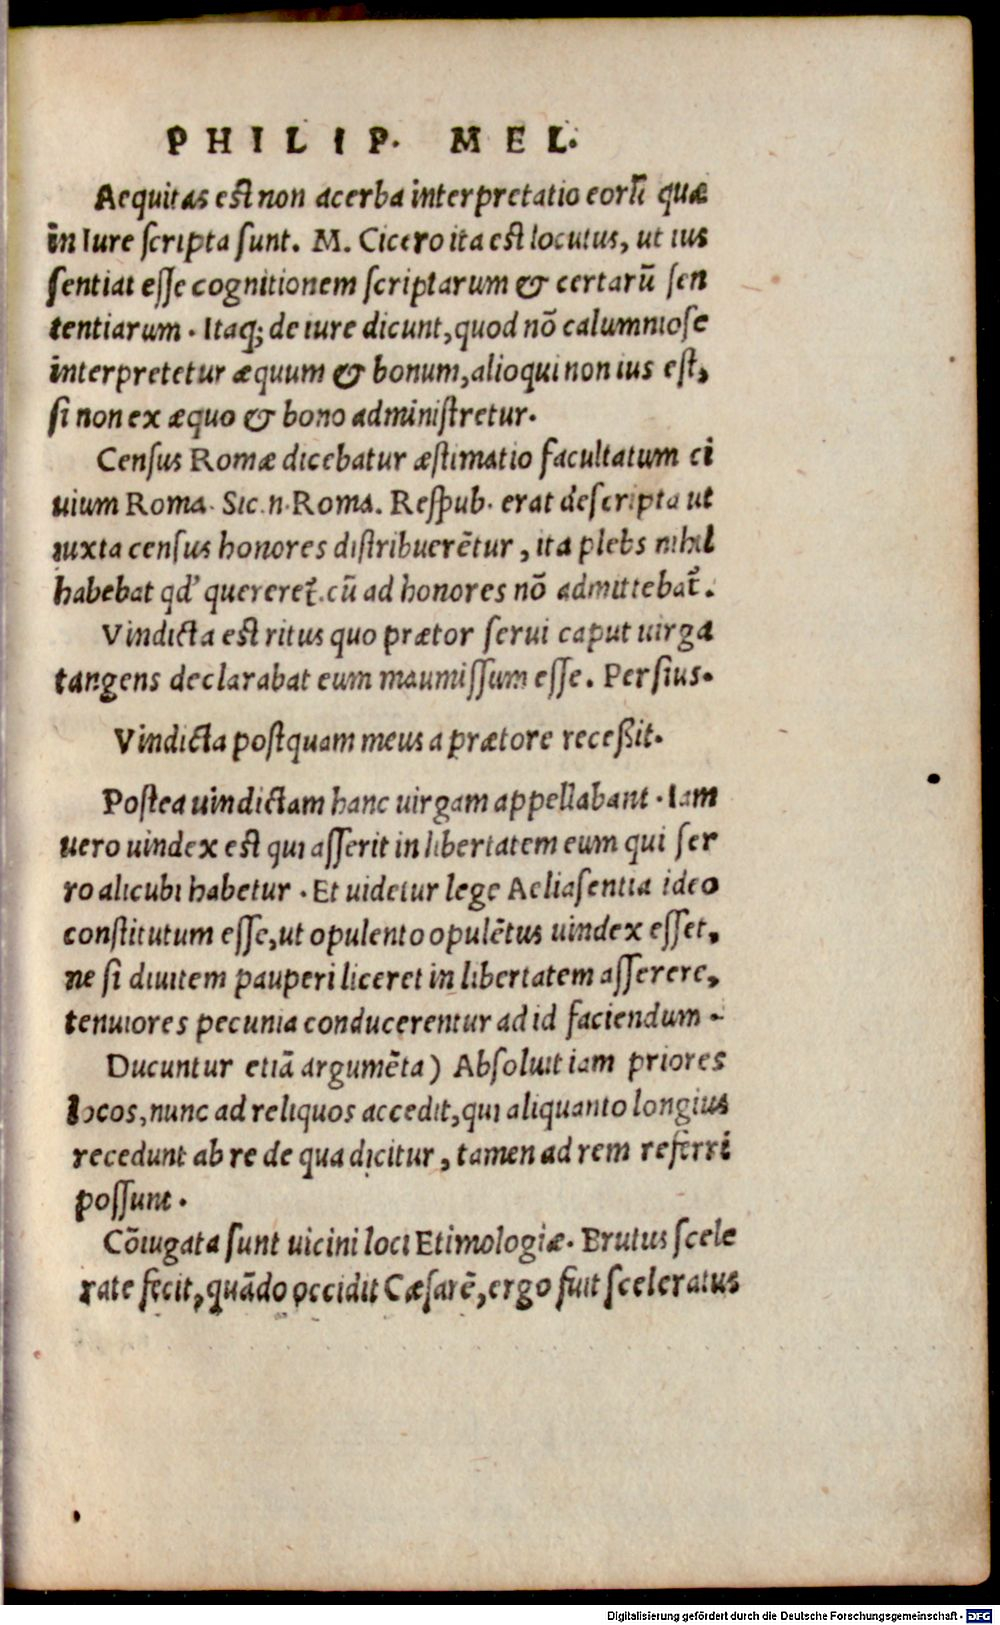 PHILIP. MEL.
Aequitas est non acerba interpretatio eorũ quæ
in Iure ſcripta ſunt. M. Cicero ita est locutus, ut ius
ſentiat eſſe cognitionem ſcriptarum & certarũ ſen
tentiarum. Itaq; de iure dicunt, quod nõ calumnioſe
interpretetur æquum & bonum, alioqui non ius eſt,
ſi non ex æquo & bono adminiſtretur.
Cenſus Romæ dicebatur æſtimatio facultatum ci
uium Roma. Sic.n. Roma. Reſpub. erat deſcripta ut
iuxta cenſus honores diſtribuerẽtur, ita plebs nihil
habebat qd' quereret̃. cũ ad honores nõ admittebat̃.
Vindicta est ritus quo prætor ſerui caput uirga
tangens declarabat eum maumiſſum eſſe. Perſius.
Vindicta poſtquam meus a prætore receßit.
Poſtea uindictam hanc uirgam appellabant. Iam
uero uindex est qui aſſerit in libertatem eum qui ſer
ro alicubi habetur. Et uidetur lege Aeliaſentia ideo
conſtitutum eſſe, ut opulento opulẽtus uindex eſſet,
ne ſi diuitem pauperi liceret in libertatem aſſerere,
tenuiores pecunia conducerentur ad id faciendum.
Ducuntur etiã argumẽta) Abſoluit iam priores
locos, nunc ad reliquos accedit, qui aliquanto longius
recedunt ab re de qua dicitur, tamen ad rem referri
poſſunt.
Cõiugata ſunt uicini loci Etimologiæ. Brutus ſcele
rate fecit, quãdo occidit Cæſarẽ, ergo fuit ſceleratus
Digitalisierung gefördert durch die Deutsche Forschungsgemeinschaft - DFG